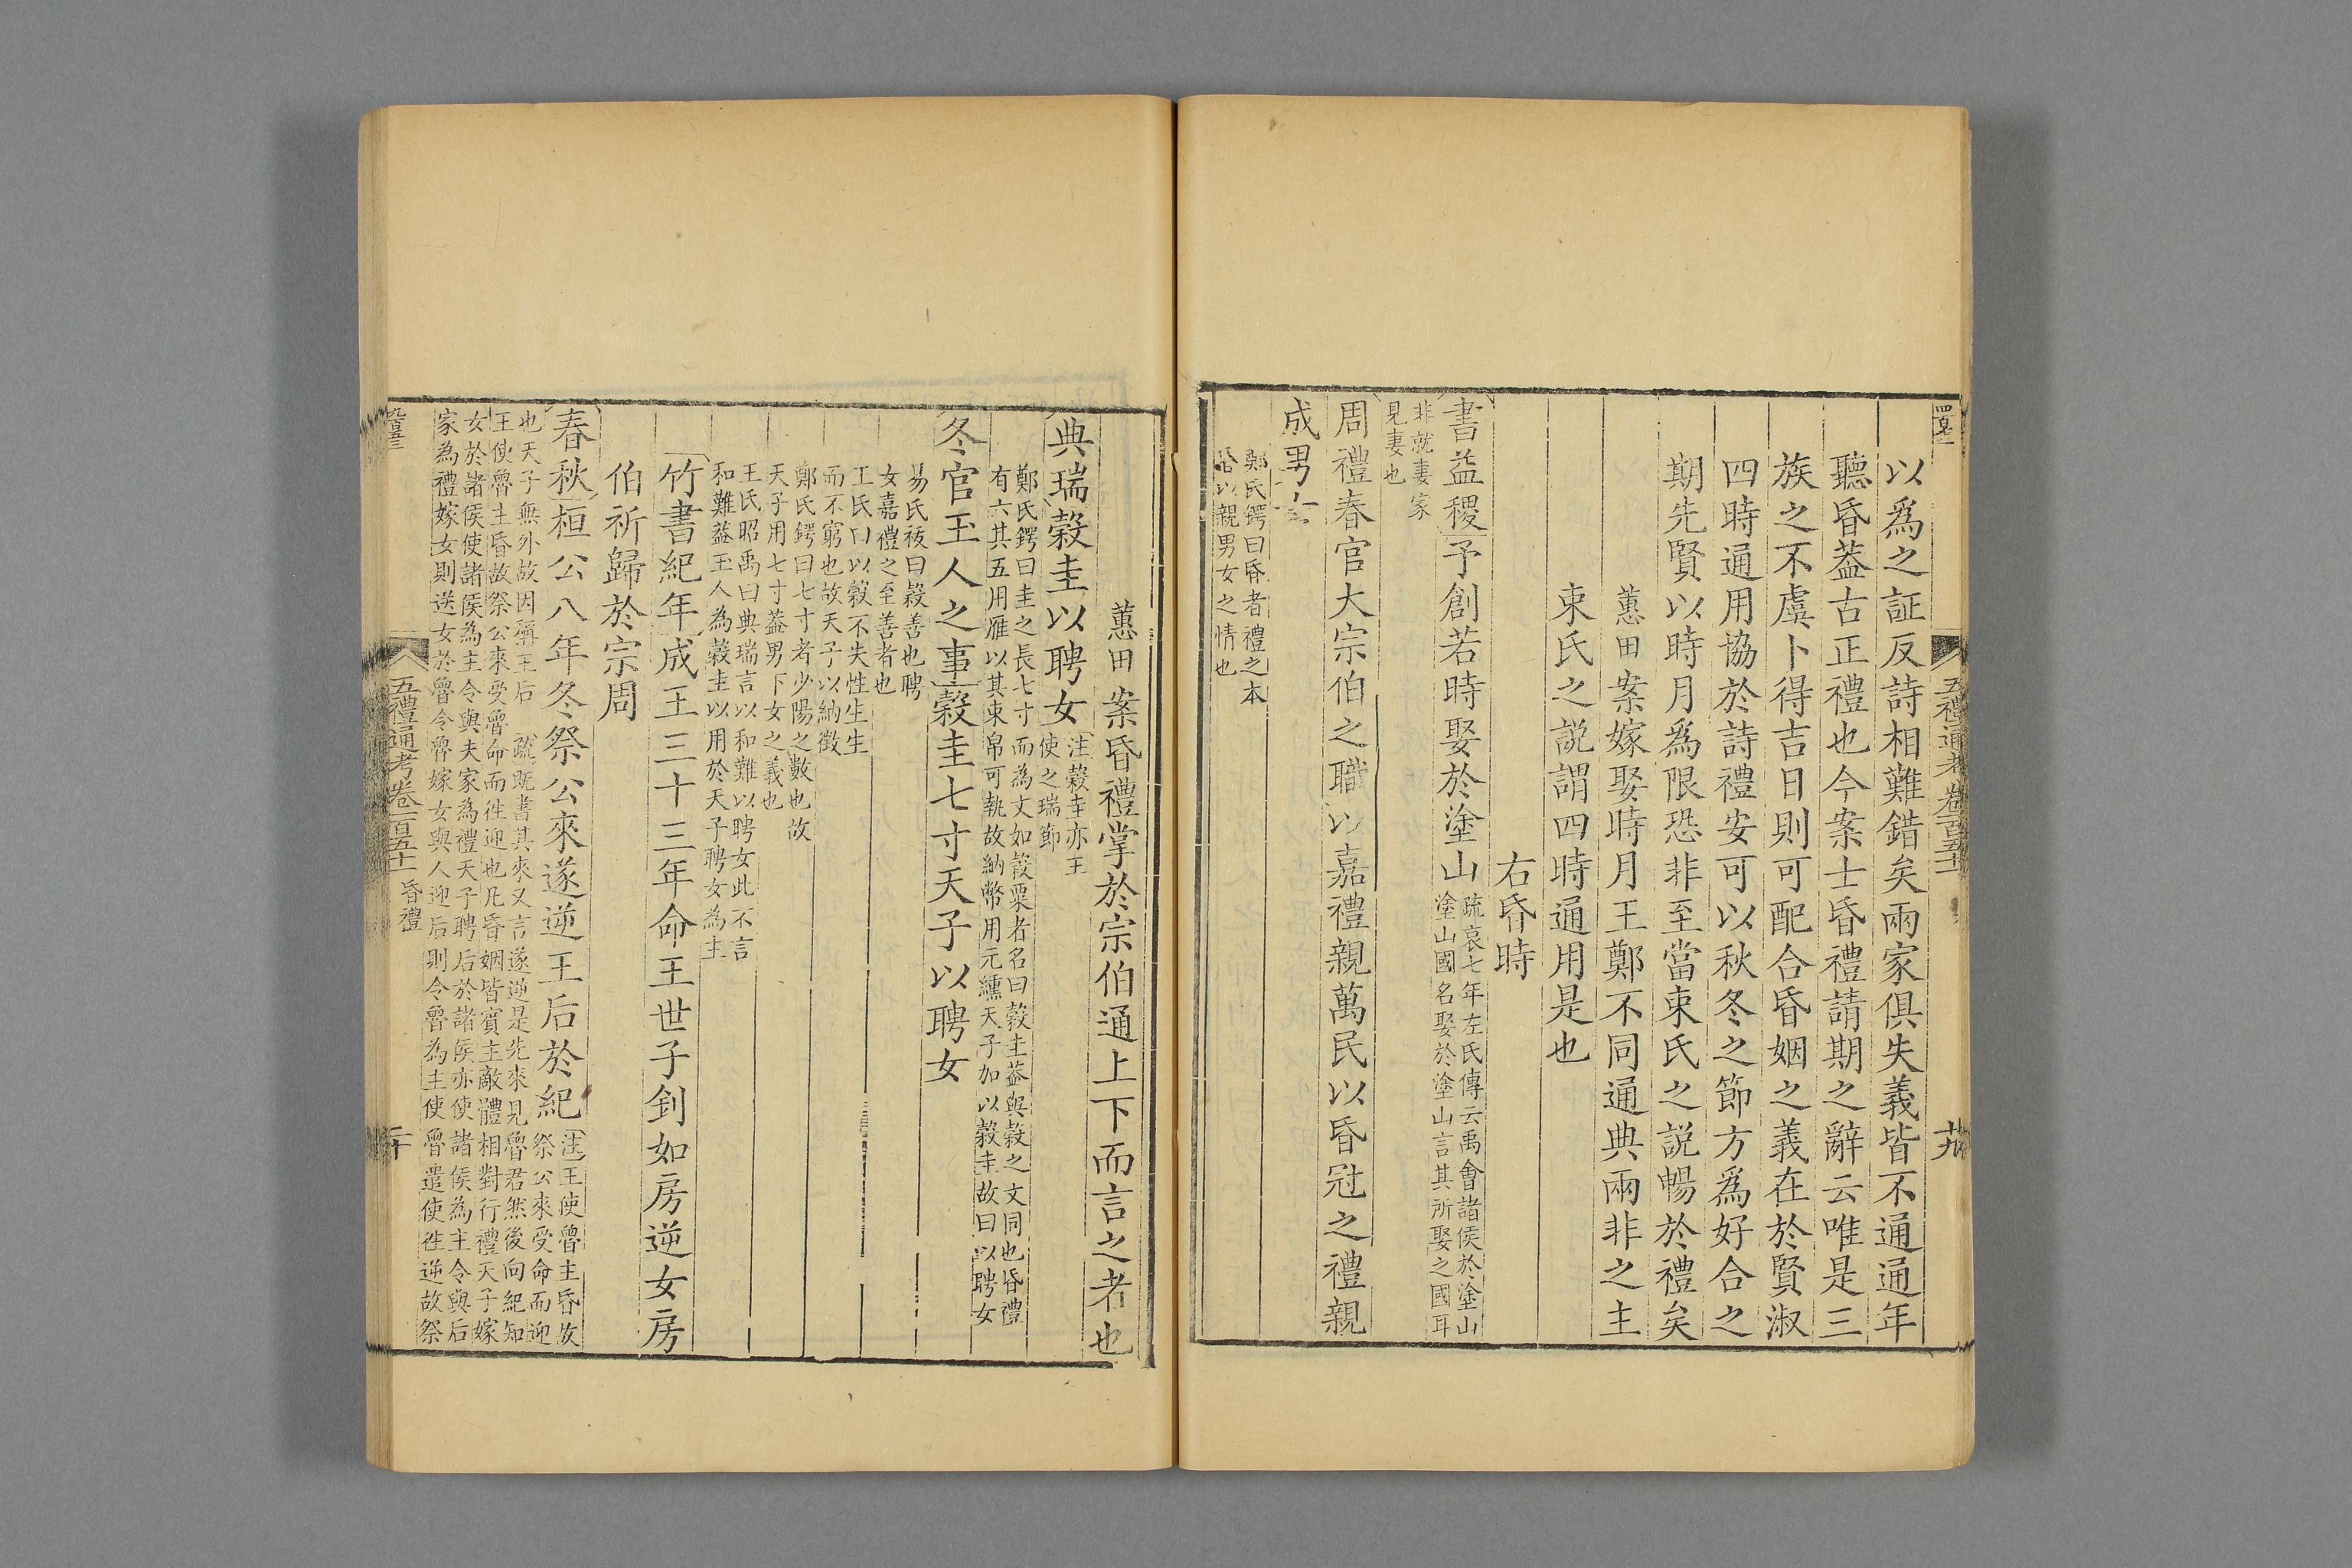 五禮通考卷一百五十一
以爲之証反詩相難錯矣兩家俱失義皆不通通年
聽昏葢古正禮也今案士昏禮請期之辭云唯是三
族之不虞卜得吉日則可配合昏姻之義在於賢淑
四時通用協於詩禮安可以秋冬之節方爲好合之
期先賢以時月爲限恐非至當束氏之説暢於禮矣
蕙田案嫁娶時月王鄭不同通典兩非之主
束氏之説謂四時通用是也
右昏時
書益稷予創若時娶於塗山
疏哀七年左氏傳云禹會諸侯於塗山
塗山國名娶於塗山言其所娶之國耳
非就妻家
見妻也
周禮春官大宗伯之職以嘉禮親萬民以昏冠之禮親
成男
鄭氏鍔曰昏者禮之本
昏以親男女之情也
蕙田案昏禮掌於宗伯通上下而言之者也
典瑞穀圭以聘女
注穀圭亦王
使之瑞節
鄭氏鍔曰圭之長七寸而為文如穀粟者名曰穀圭葢與穀之文同也昏禮
有六其五用雁以其束帛可執故納幣用元纁天子加以穀圭故曰以聘女
冬官玉人之事穀圭七寸天子以聘女
易氏祓曰穀善也聘
女嘉禮之至善者也
王氏曰以穀不失性生生
而不窮也故天子以納徵
鄭氏鍔曰七寸者少陽之數也故
天子用七寸葢男下女之義也
王氏昭禹曰典瑞言以和難以聘女此不言
和難葢玉人為穀圭以用於天子聘女為主
竹書紀年成王三十三年命王世子釗如房逆女房
伯祈歸於宗周
春秋桓公八年冬祭公來遂逆王后於紀
注王使魯主昏故
祭公來受命而迎
也天子無外故因稱王后
疏既書其來又言遂逆是先來見魯君然後向紀知
王使魯主昏故祭公來受魯命而往迎也凡昏姻皆賓主敵體相對行禮天子嫁
女於諸侯使諸侯為主令與夫家為禮天子聘后於諸侯亦使諸侯為主令與后
家為禮嫁女則送女於魯令魯嫁女與人迎后則令魯為主使魯遣使往逆故祭
五禮通考卷一百五十一
昏禮
二十